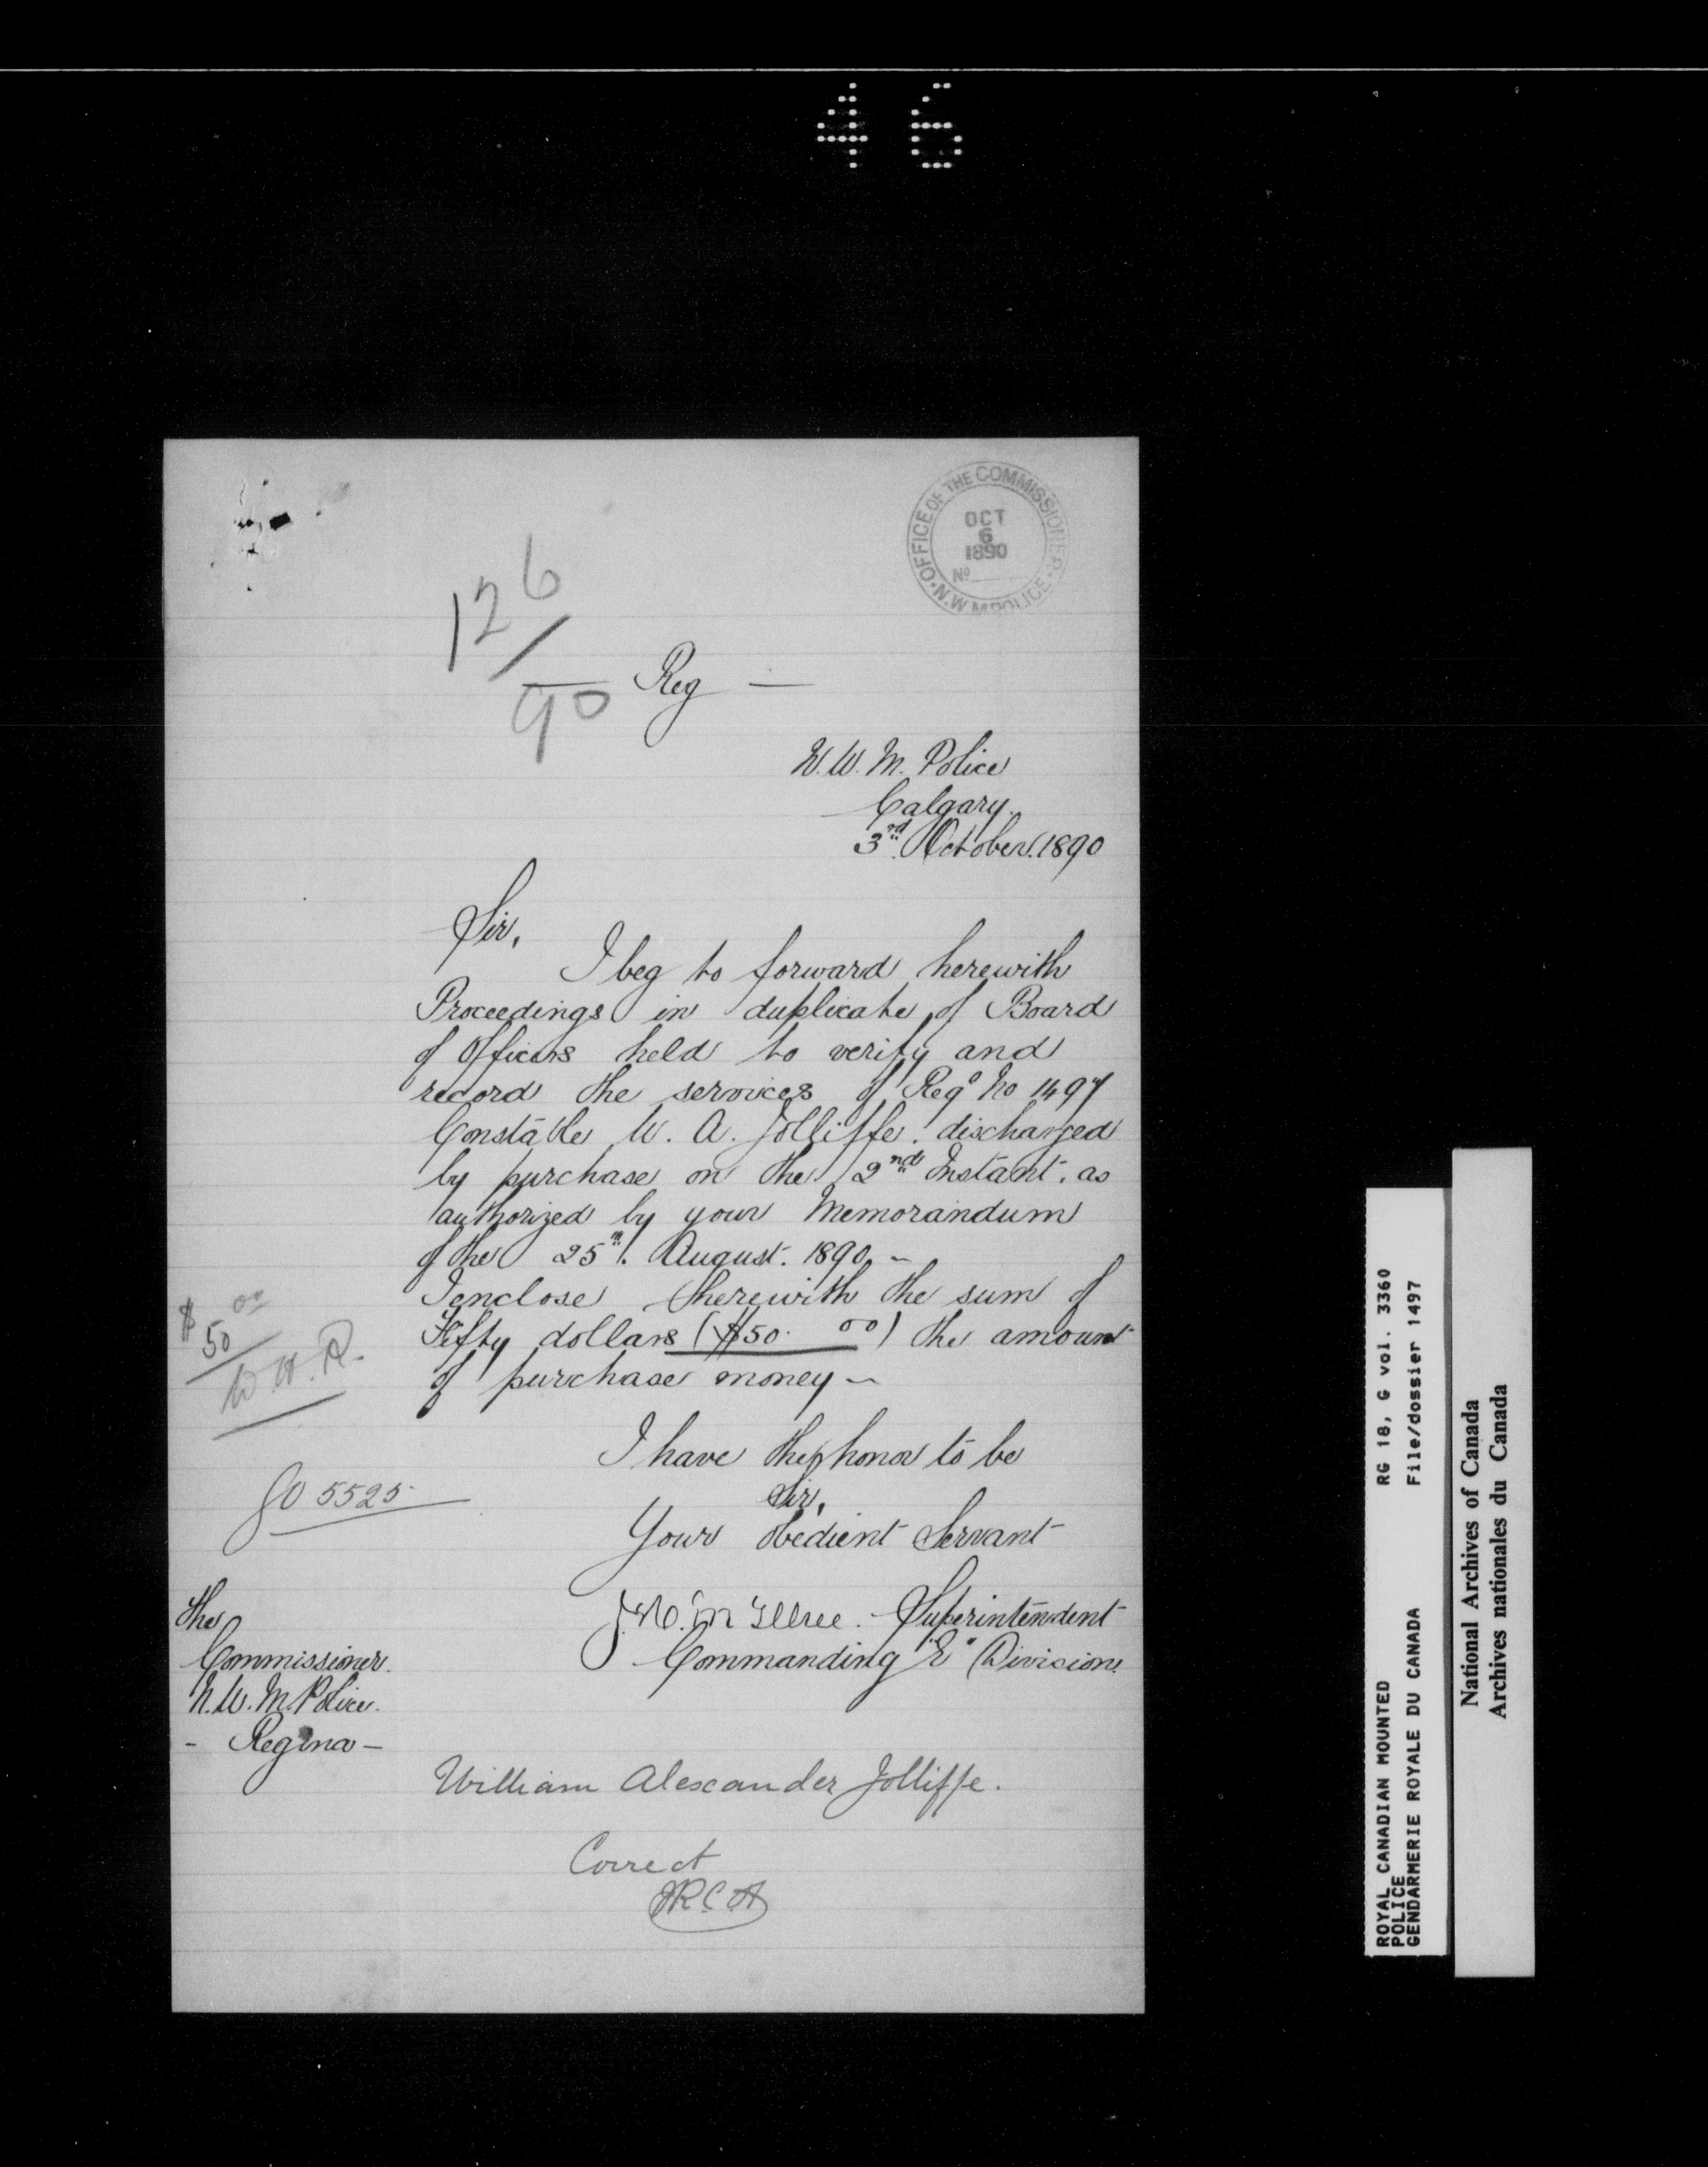 46
OFFICE OF THE COMMISSIONER
OCT
6
1890
No
N.W.M. POLICE
126/90 Reg —
N. W. M. Police
Calgary.
3rd October. 1890
Sir,
I beg to forward herewith
Proceedings in duplicate of Board
of Officers held to verify and
record the services of Regl No 1497
Constable W. A. Jolliffe. discharged
by purchase on the 2nd Instant. as
authorized by your Memorandum
of the 25th. August. 1890 —
I enclose herewith the sum of
Fifty dollars ($50. 00) the amount
of purchase money —
$50 00
I have the honor to be
Sir,
Your obedient Servant
5525
J.H. McIllree. Superintendent
Commanding "E" Division
The
Commissioner.
N. W. M. Police.
- Regina -
William Alexander Jolliffe.
Correct
ROYAL CANADIAN MOUNTED
POLICE
GENDARMERIE ROYALE DU CANADA
RG 18, G vol. 3360
File/dossier 1497
National Archives of Canada
Archives nationales du Canada